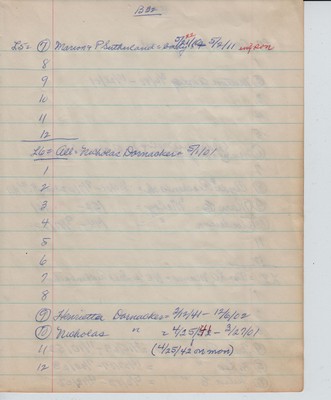 B22
L5 = (7) Marion & P Sutherland = 5/2/11
8
9
10
11
12
L6 = All = Nicholas Dornacker = 5/1/01
1
2
3
4
5
6
7
8
(9) Henrietta Dornacker = 2/12/41 - 12/6/02
(10) Nicholas " = 4/25/41 - 3/27/01
11 (4/25/42 on mon)
12